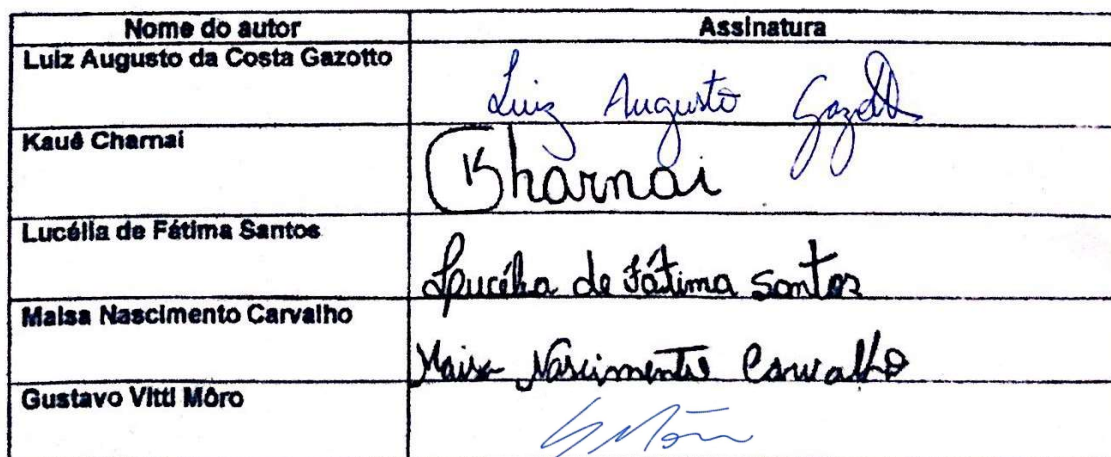 Nome do autor Assinatura
Luiz Augusto da Costa Gazotto
Luiz Augusto Gazotto
Kauê Charnai
Kharnai
Lucélia de Fátima Santos
Lucélia de Fátima Santos
Maisa Nascimento Carvalho
Maisa Nascimento Carvalho
Gustavo Vitti Môro